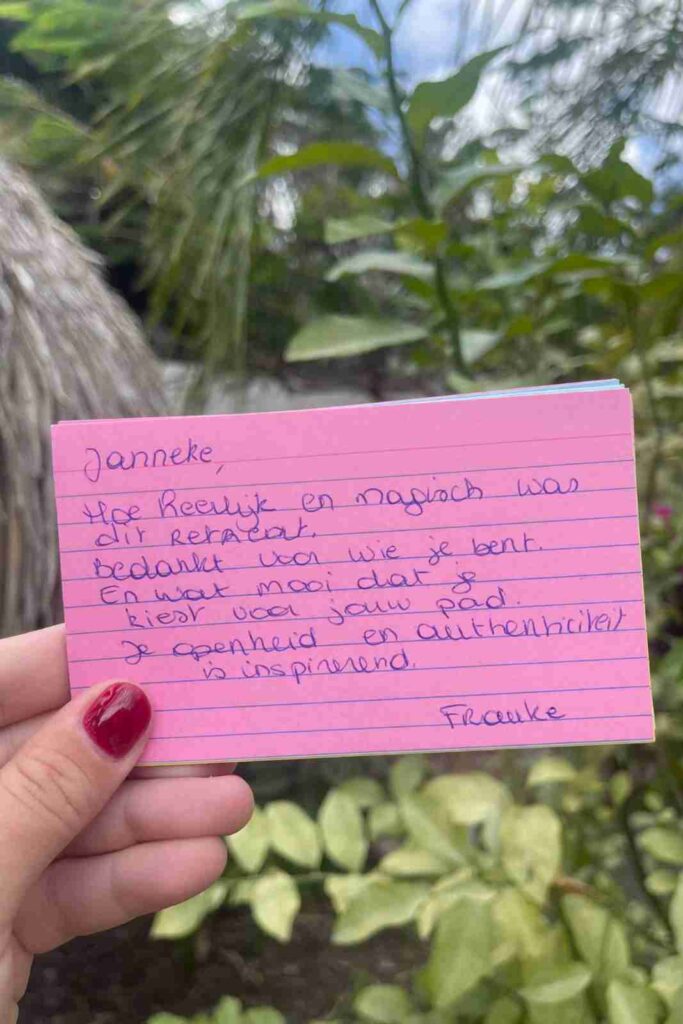 Janneke,
Hoe heerlijk en magisch was
dit retreat.
Bedankt voor wie je bent.
En wat mooi dat je
kiest voor jouw pad.
Je openheid en authenticiteit
is inspirerend.
Frauke